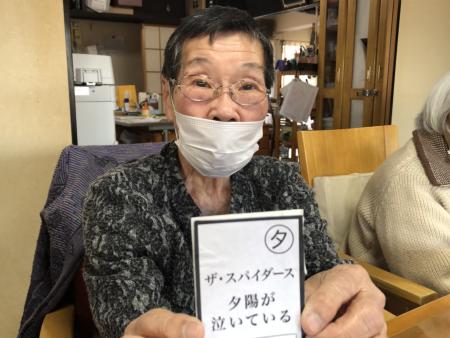 夕
ザ・スパイダース
夕陽が
泣いている